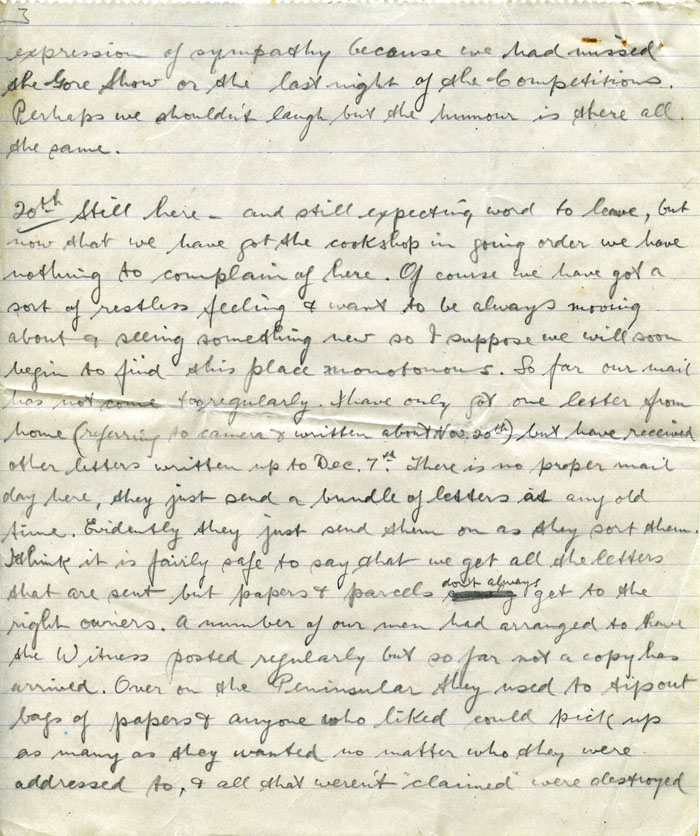 3
expression of sympathy because we had missed
the Gore Show or the last night of the Competitions.
Perhaps we shouldn't laugh but the humour is there all
the same.
20th Still here - and still expecting word to leave, but
now that we have got the cookshop in going order we have
nothing to complain of here. Of course we have got a
sort of restless feeling & want to be always moving
about & seeing something new so I suppose we will soon
begin to find this place monotonous. So far our mail
has not come to regularly. I have only got one letter from
home (referring to camera & written about Nov. 20th) but have received
other letters written up to Dec. 7st. There is no proper mail
day here, they just send a bundle of letters at any old
time. Evidently they just send them on as they sort them.
I think it is fairly safe to say that we get all the letters
that are sent but papers & parcels don't always get to the
right owners. A number of our men had arranged to have
the Witness posted regularly but so far not a copy has
arrived. Over on the Peninsular they used to tip out
bags of papers & anyone who liked could pick up
as many as they wanted no matter who they were
addressed to, & all that weren't "claimed" were destroyed